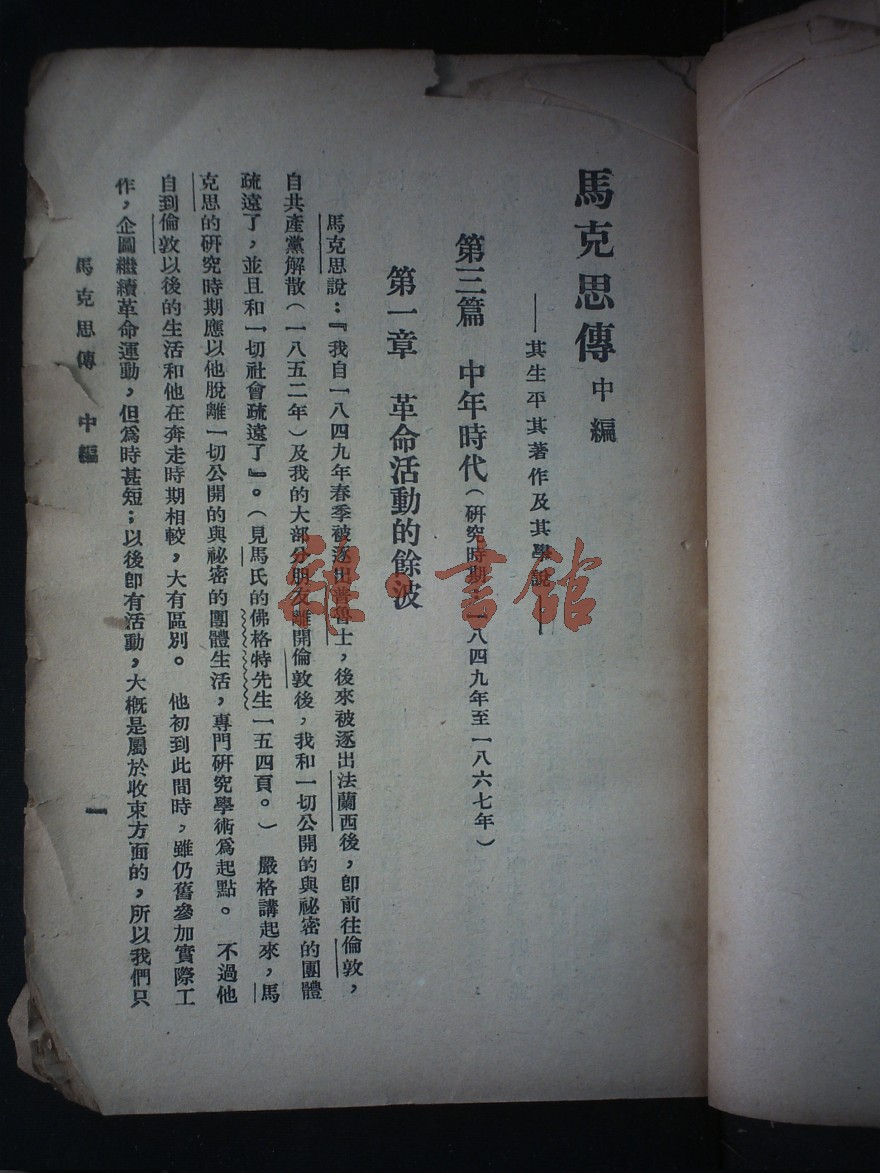 馬克思傳 中編
——其生平其著作及其學說——
第三篇 中年時代(研究時期:一八四九年至一八六七年)
第一章 革命活動的餘波
馬克思說:『我自一八四九年春季被逐出普魯士,後來被逐出法蘭西後,卽前往倫敦,
自共產黨解散(一八五二年)及我的大部分朋友離開倫敦後,我和一切公開的與祕密的團體
疏遠了,並且和一切社會疏遠了』。(見馬氏的佛格特先生一五四頁。) 嚴格講起來,馬
克思的研究時期應以他脫離一切公開的與祕密的團體生活,專門研究學術爲起點。 不過他
自到倫敦以後的生活和他在奔走時期相較,大有區別。 他初到此間時,雖仍舊參加實際工
作,企圖繼續革命運動,但爲時甚短;以後卽有活動,大槪是屬於收束方面的,所以我們只
馬克思傳 中編
一
雜·書館